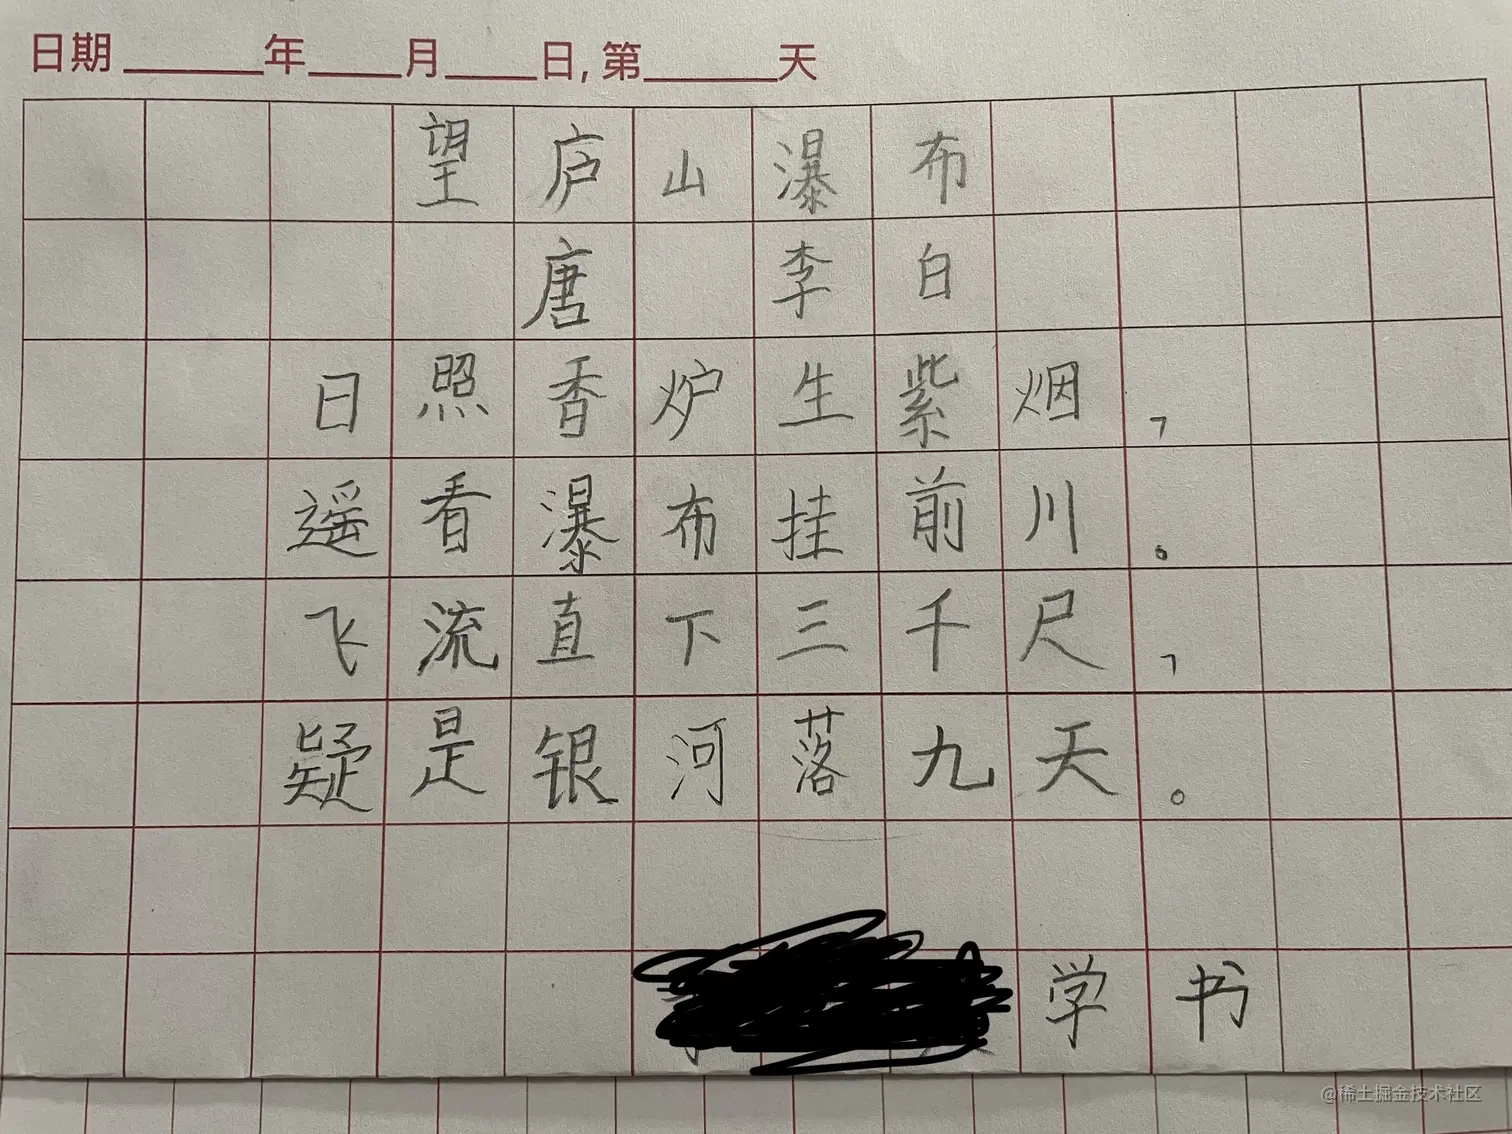 日期______年____月____日, 第______天
望庐山瀑布
唐 李白
日照香炉生紫烟,
遥看瀑布挂前川。
飞流直下三千尺,
疑是银河落九天。
学书
@稀土掘金技术社区